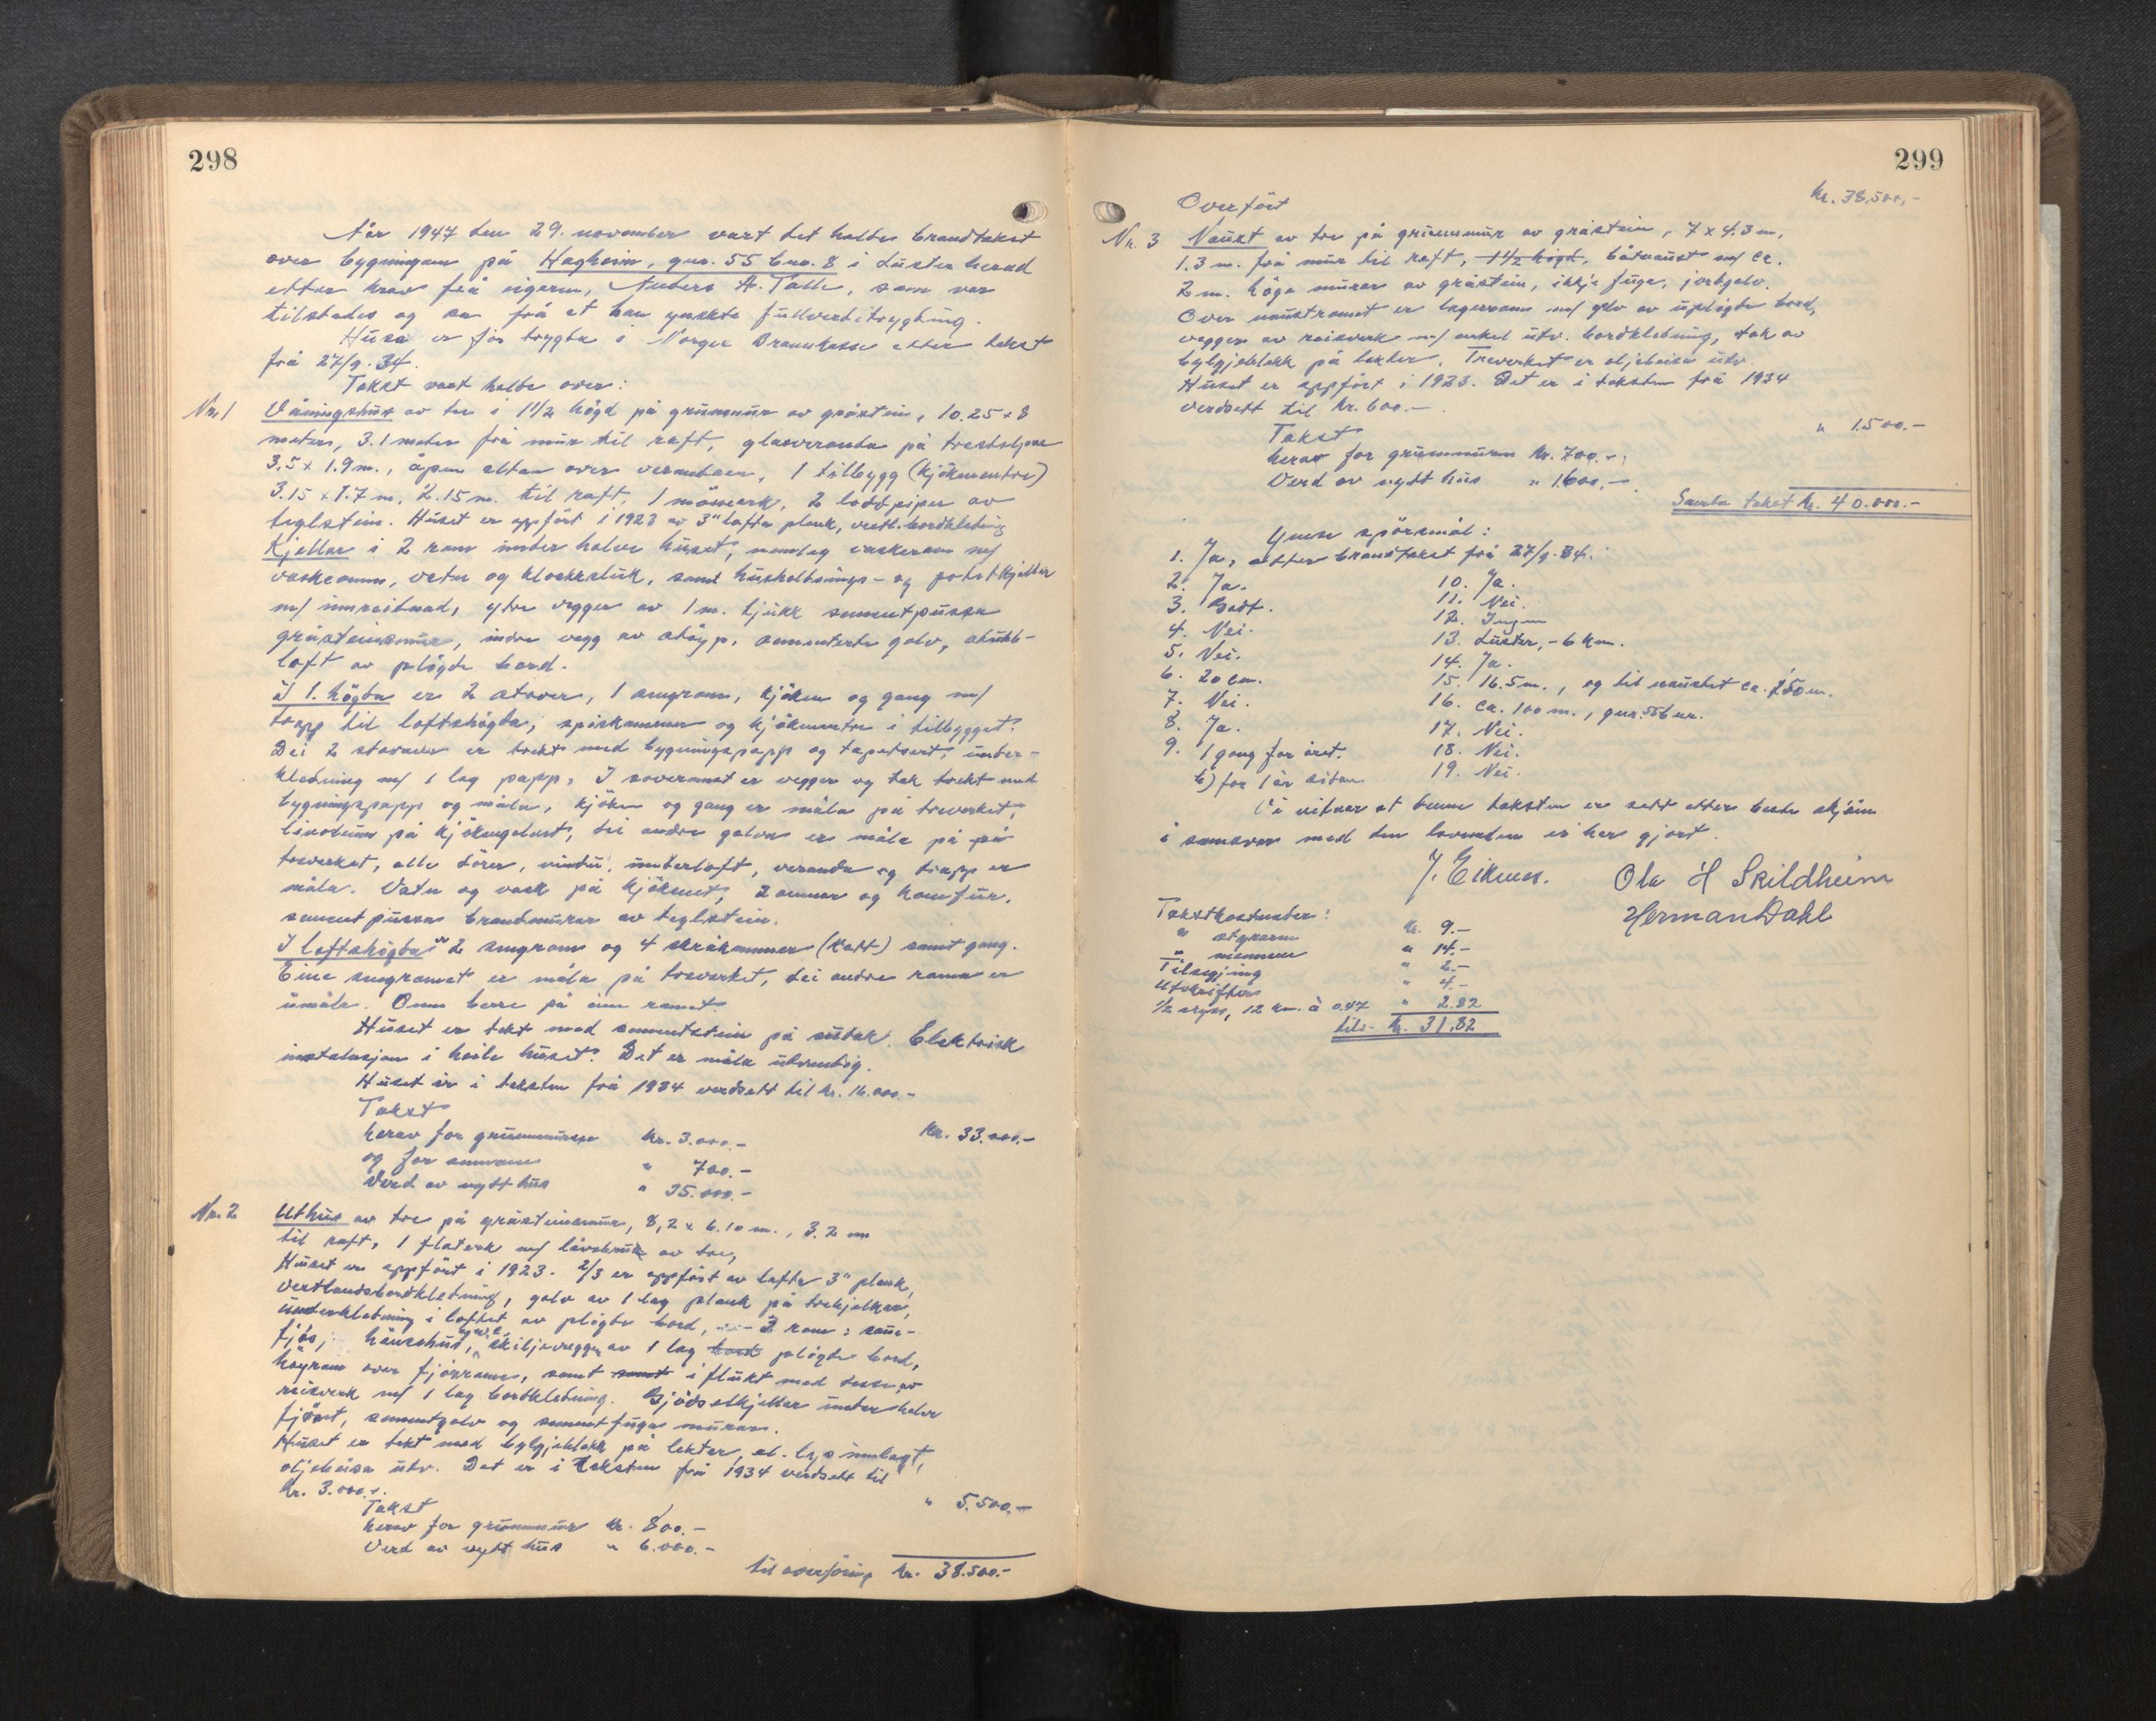 298
År 1947 den 29. november vart det halde brandtakst
over bygningane på Hagheim, gnr. 55 bnr. 8 i Luster herad
etter krav frå eigaren, Anders A. Talle, som var
tilstades og sa frå at han ynskte fullverditrygding.
Husa er før trygda i Norges Brannkasse etter takst
frå 27/9.34.
Takst vart halde over:
Nr. 1 Våningshus av tre i 1 1/2 högd på grunnmur av gråstein, 10.25 x 8
meter, 3.1 meter frå mur til raft, glasveranda på trestolpar
3.5 x 1.9 m., åpen altan over verandaen, 1 tilbygg (kjökenentre)
3.15 x 1.7 m. 2.15 m. til raft. 1 mönsark, 2 loddpiper av
teglstein. Huset er oppfört i 1923 av 3" lafta plank, vestl. bordkledning
Kjellar i 2 rom under halve huset, nemleg vaskerom m/
vaskeomn, vatn og kloakksluk, samt hushaldnings- og potetkjellar
m/ innreidnad, ytre vegger av 1 m. tjukk sementpussa
gråsteinsmur, indre vegg av støyp, sementerte golv, stubb-
loft av plögde bord.
I 1. högda er 2 stover, 1 sengrom, kjöken og gang m/
trapp til loftshögda, spiskammer og kjökenentre i tilbygget.
Dei 2 stovene er trekt med bygningspapp og tapetsert, under-
kledning m/ 1 lag papp. I soveromet er vegger og tak trekt med
bygningspapp og måla, kjöken og gang er måla på treverket,
linoleum på kjökengolvet, dei andre golva er måla på på
treverket, alle dörer, vindu, underloft, veranda og trapp er
måla. Vatn og vask på kjökenet, 2 omnar og komfur,
sementpussa brandmurar av teglstein.
I loftshögda er 2 sengrom og 4 skråkammer (kott) samt gang.
Eine sengromet er måla på treverket, dei andre roma er
umåla. Omn berre på eine romet.
Huset er tekt med sementstein på sutak. Elektrisk
instalasjon i heile huset. Det er måla utvendig.
Huset er i taksten frå 1934 verdsett til kr. 16.000.-
Takst kr. 33.000.-
herav for grunnmuren kr. 3.000.-
og for omnane " 700.-
Verd av nytt hus " 35.000.-
Nr. 2 Uthus av tre på gråsteinsmur, 8,2 x 6.10 m., 3.2 m
til raft, 1 flatark m/ låvebru av tre,
Huset er oppfört i 1923. 2/3 er oppfört av lafta 3" plank,
vestlandsbordkledning, golv av 1 lag plank på trebjelkar,
underkledning i loftet av plögde bord, 2 rom: saue-
fjös, hönsehus, skiljevegger av 1 lag bord plögde bord,
höyrom over fjösromet, samt samt i flukt med desse av
reisverk m/ 1 lag bordkledning. Gjödselkjellar under halve
fjöset, sementgolv og sementfuga murar.
Huset er tekt med bylgjeblekk på lekter, el. lys innlagt,
oljebeisa utv. Det er i taksten frå 1934 verdsett til
kr. 3.000.-.
Takst " 5.500.-
herav for grunnmur kr. 800.-
Verd av nytt hus " 6.000.-
til overföring kr. 38.500.-
299
Overfört kr. 38.500,-
Nr. 3 Naust av tre på grunnmur av gråstein, 7 x 4.3 m,
1.3 m. frå mur til raft, 1 1/2 högd, båtnaust m/ ca.
2 m. höge murar av gråstein, ikkje fuga, jordgolv.
Over naustromet er lagerrom m/ golv av uplögde bord,
vegger av reisverk m/ enkel utv. bordkledning, tak av
bylgjeblekk på lekter. Treverket er oljebeisa utv.
Huset er oppfört i 1923. Det er i taksten frå 1934
verdsett til kr. 600.-.
Takst " 1.500.-
herav for grunnmuren kr. 700.-.
Verd av nytt hus " 1600.-
Samla takst kr. 40.000.-
Ymse spörsmål:
1. Ja, etter brandtakst frå 27/9.34.
2. Ja.
3. Godt.
4. Nei.
5. Nei.
6. 20 cm.
7. Nei.
8. Ja.
9. 1 gong for året.
b) for 1 år sidan
10. Ja.
11. Nei.
12. Ingen
13. Luster, - 6 km.
14. Ja.
15. 16.5 m., og til naustet ca. 150 m.
16. ca. 100 m., gnr. 55 bnr.
17. Nei.
18. Nei.
19. Nei.
Vi vitnar at denne taksten er sett etter beste skjön
i samsvar med den lovnaden vi har gjort.
J. Eikenes. Ola H Skildheim
Herman Dahl
Takstkostnader:
" styraren kr. 9.-
" mennene " 14.-
Tilseging " 2.-
Utskrifter " 4.-
1/2 skyss, 12 km. à 0.47 " 2.82
tils. kr. 31.82